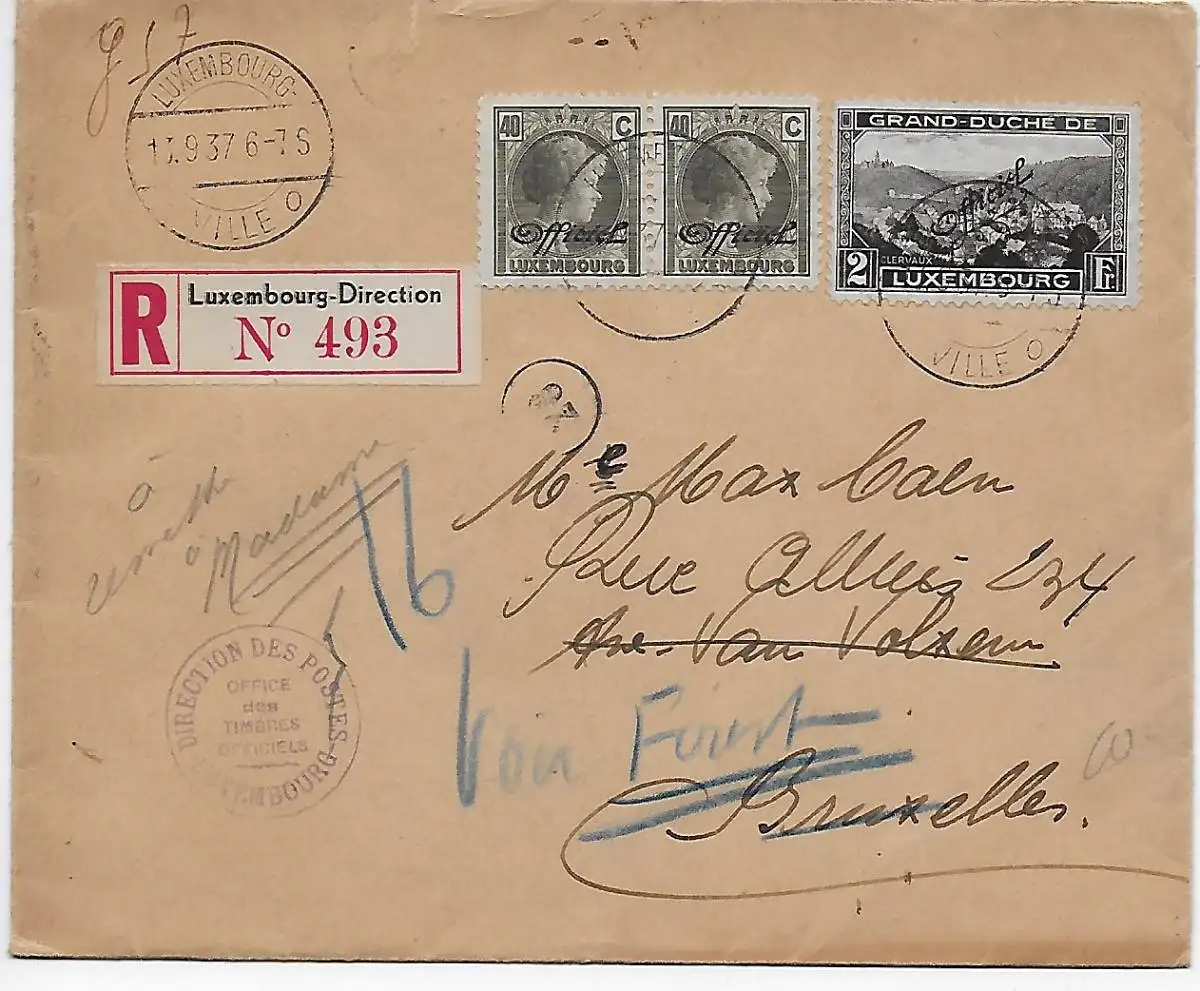 g 57
LUXEMBOURG-
13.9 37 6-7 S
VILLE O
40 C
Officiel
LUXEMBOURG
40 C
Officiel
LUXEMBOURG
GRAND-DUCHÉ DE
Officiel
CLERVAUX
2 LUXEMBOURG Fr.
VILLE O
R Luxembourg-Direction
Nº 493
à
remettre
à Madame
16
Me Max Caen
Rue
234
Ave. Van Volxem
Voir Forest
Bruxelles.
DIRECTION DES POSTES-
LUXEMBOURG
OFFICE
des
TIMBRES
OFFICIELS